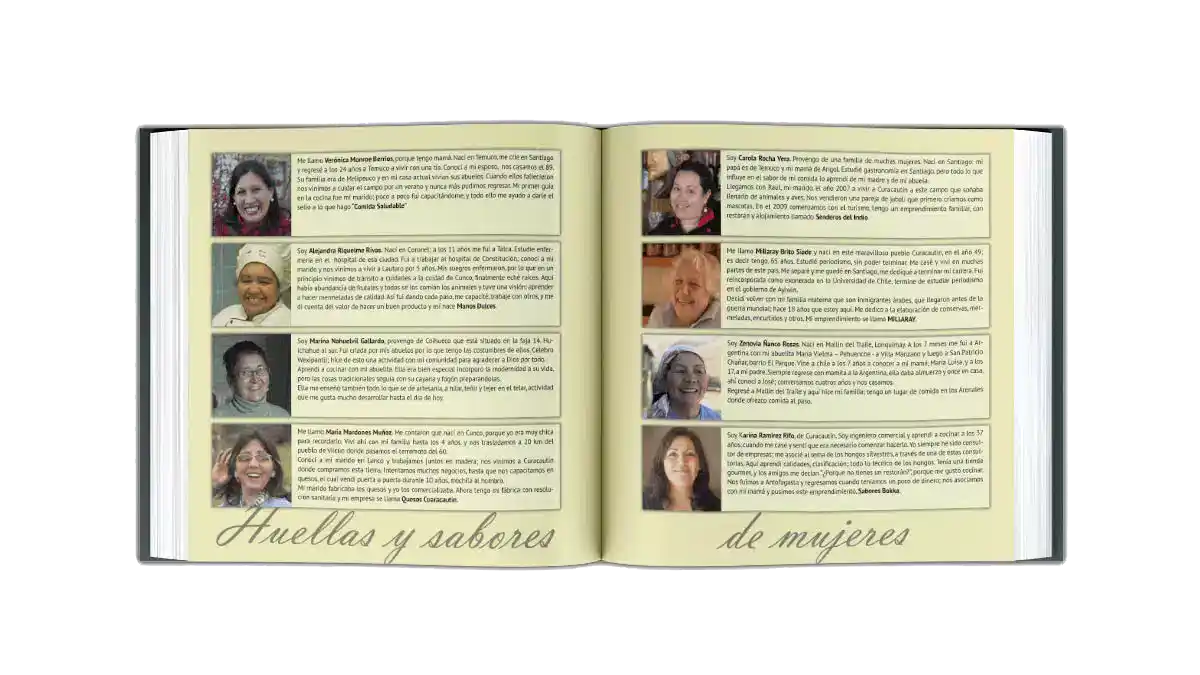 Me llamo Verónica Monroe Berríos, porque tengo mamá. Nací en Temuco, me crie en Santiago
y regresé a los 24 años a Temuco a vivir con una tío. Conocí a mi esposo, nos casamos el 89.
Su familia era de Melipeuco y en mi casa actual vivían sus abuelos. Cuando ellos fallecieron
nos vinimos a cuidar el campo por un verano y nunca más pudimos regresar. Mi primer guía
en la cocina fue mi marido; poco a poco fui capacitándome, y todo ello me ayudó a darle el
sello a lo que hago "Comida Saludable"
Soy Alejandra Riquelme Rivas. Nací en Coronel; a los 11 años me fui a Talca. Estudie enfer-
mería en el hospital de esa ciudad. Fui a trabajar al hospital de Constitución; conocí a mi
marido y nos vinimos a vivir a Lautaro por 5 años. Mis suegros enfermaron, por lo que en un
principio vinimos de tránsito a cuidarles a la ciudad de Cunco, finalmente eché raíces. Aquí
había abundancia de frutales y todos se los comían los animales y tuve una visión: aprender
a hacer mermeladas de calidad. Así fui dando cada paso, me capacité, trabaje con otros, y me
di cuenta del valor de hacer un buen producto y así nace Manos Dulces.
Soy Marina Nahuelvil Gallardo, provengo de Coihueco que está situado en la faja 14, Hu-
ichahue al sur. Fui criada por mis abuelos por lo que tengo las costumbres de ellos. Celebra
Wexipantü; hice de esto una actividad con mi comunidad para agradecer a Dios por todo.
Aprendí a cocinar con mi abuelita. Ella era bien especial incorporó la modernidad a su vejez,
pero las cosas tradicionales seguía con su cayana y fogón preparándolas.
Ella me enseñó también todo lo que se de artesanía, a hilar, teñir y tejer en el telar, actividad
que me gusta mucho desarrollar hasta el día de hoy.
Me llamo María Mardones Muñoz. Me contaron que nací en Cunco, porque yo era muy chica
para recordarlo. Viví ahí con mi familia hasta los 4 años, y nos trasladamos a 20 km del
pueblo de Vilcún donde pasamos el terremoto del 60.
Conocí a mi marido en Lanco y trabajamos juntos en madera; nos vinimos a Curacautín
donde compramos esta tierra. Intentamos muchos negocios, hasta que nos capacitamos en
quesos, el cual vendí puerta a puerta durante 10 años, mochila al hombro.
Mi marido fabricaba los quesos y yo los comercializaba. Ahora tengo mi fábrica con resolu-
ción sanitaria y mi empresa se llama Quesos Cuaracautín.
Huellas y sabores
Soy Carola Rocha Vera. Provengo de una familia de muchas mujeres. Nací en Santiago; mi
papá es de Temuco y mi mamá de Angol. Estudié gastronomía en Santiago, pero todo lo que
influye en el sabor de mi comida lo aprendí de mi madre y de mi abuela.
Llegamos con Raúl, mi marido, el año 2007 a vivir a Curacautín a este campo que soñaba
llenarlo de animales y aves. Nos vendieron una pareja de jabalí que primero criamos como
mascotas. En el 2009 comenzamos con el turismo, tengo un emprendimiento familiar, con
restorán y alojamiento llamado Senderos del Indio.
Me llamo Millaray Brito Siade y nací en este maravilloso pueblo Curacautín, en el año 49;
es decir tengo, 65 años. Estudié periodismo, sin poder terminar. Me casé y viví en muchas
partes de este país. Me separé y me quedé en Santiago, me dediqué a terminar mi carrera. Fui
reincorporada como exonerada en la Universidad de Chile, termine de estudiar periodismo
en el gobierno de Aylwin.
Decidí volver con mi familia materna que son inmigrantes árabes, que llegaron antes de la
guerra mundial; hace 18 años que estoy aquí. Me dedico a la elaboración de conservas, mer-
meladas, encurtidos y otros. Mi emprendimiento se llama MILLARAY.
Soy Zenovia Ñanco Rosas. Nací en Mallín del Traile, Lonquimay. A los 7 meses me fui a Ar-
gentina con mi abuelita María Vielma – Pehuenche - a Villa Manzano y luego a San Patricio
Chañar, barrio El Parque. Vine a chile a los 7 años a conocer a mi mamá; María Luisa, y a los
17, a mi padre. Siempre regrese con mamita a la Argentina, ella daba almuerzo y once en casa,
ahí conocí a José; conversamos cuatros años y nos casamos.
Regresé a Mallín del Traile y aquí hice mi familia; tengo un lugar de comida en los Arenales
donde ofrezco comida al paso.
Soy Karina Ramírez Rifo, de Curacautín. Soy ingeniero comercial y aprendí a cocinar a los 37
años, cuando me casé y sentí que era necesario comenzar hacerlo. Yo siempre he sido consul-
tor de empresas; me asocié al tema de los hongos silvestres, a través de una de éstas consul-
torías. Aquí aprendí calidades, clasificación; todo lo técnico de los hongos. Tenía una tienda
gourmet, y los amigos me decían "¿Porque no tienes un restorán?", porque me gustó cocinar.
Nos fuimos a Antofagasta y regresamos cuando teníamos un poco de dinero; nos asociamos
con mi mamá y pusimos este emprendimiento, Sabores Bokka.
de mujeres